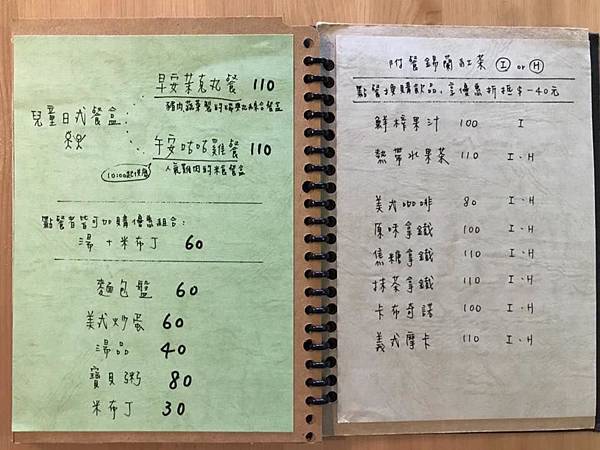 早安茉克丸餐 110
兒童日式餐盒
午安咕咕雞餐 110
10:00起供應
點餐者皆可加購優惠組合:
湯 + 米布丁 60
麵包盤 60
美式炒蛋 60
湯品 40
寶貝粥 80
米布丁 30
附餐錫蘭紅茶 I or H
點餐換購飲品,享優惠折抵$-40元
鮮榨果汁 100 I
熱帶水果茶 110 I、H
美式咖啡 80 I、H
原味拿鐵 100 I、H
焦糖拿鐵 110 I、H
抹茶拿鐵 110 I、H
卡布奇諾 100 I、H
義式摩卡 110 I、H